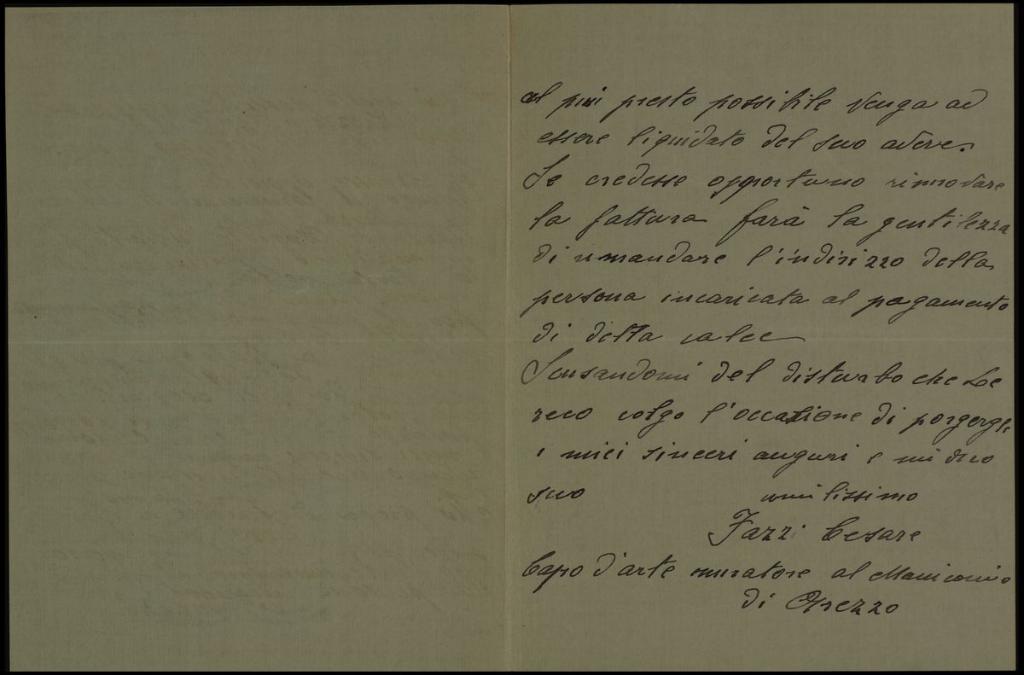 al più presto possibile venga ad
essere liquidato del suo avere.
Se credesse opportuno rinnovare
la fattura farà la gentilezza
di rimandare l'indirizzo della
persona incaricata al pagamento
di detta calce
Scusandomi del disturbo che Le
reco colgo l'occasione di porgergli
i miei sinceri auguri e mi dico
suo umilissimo
Fazzi Cesare
Capo d'arte muratore al Manicomio
di Arezzo